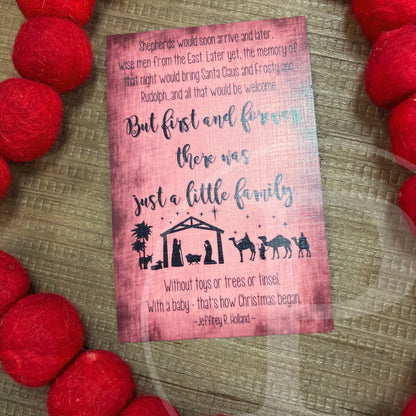 Shepherds would soon arrive and later,
wise men from the East. Later yet, the memory of
that night would bring Santa Claus and Frosty and
Rudolph...and all that would be welcome.
But first and forever
there was
just a little family
Without toys or trees or tinsel.
With a baby - that's how Christmas began.
~Jeffrey R. Holland ~